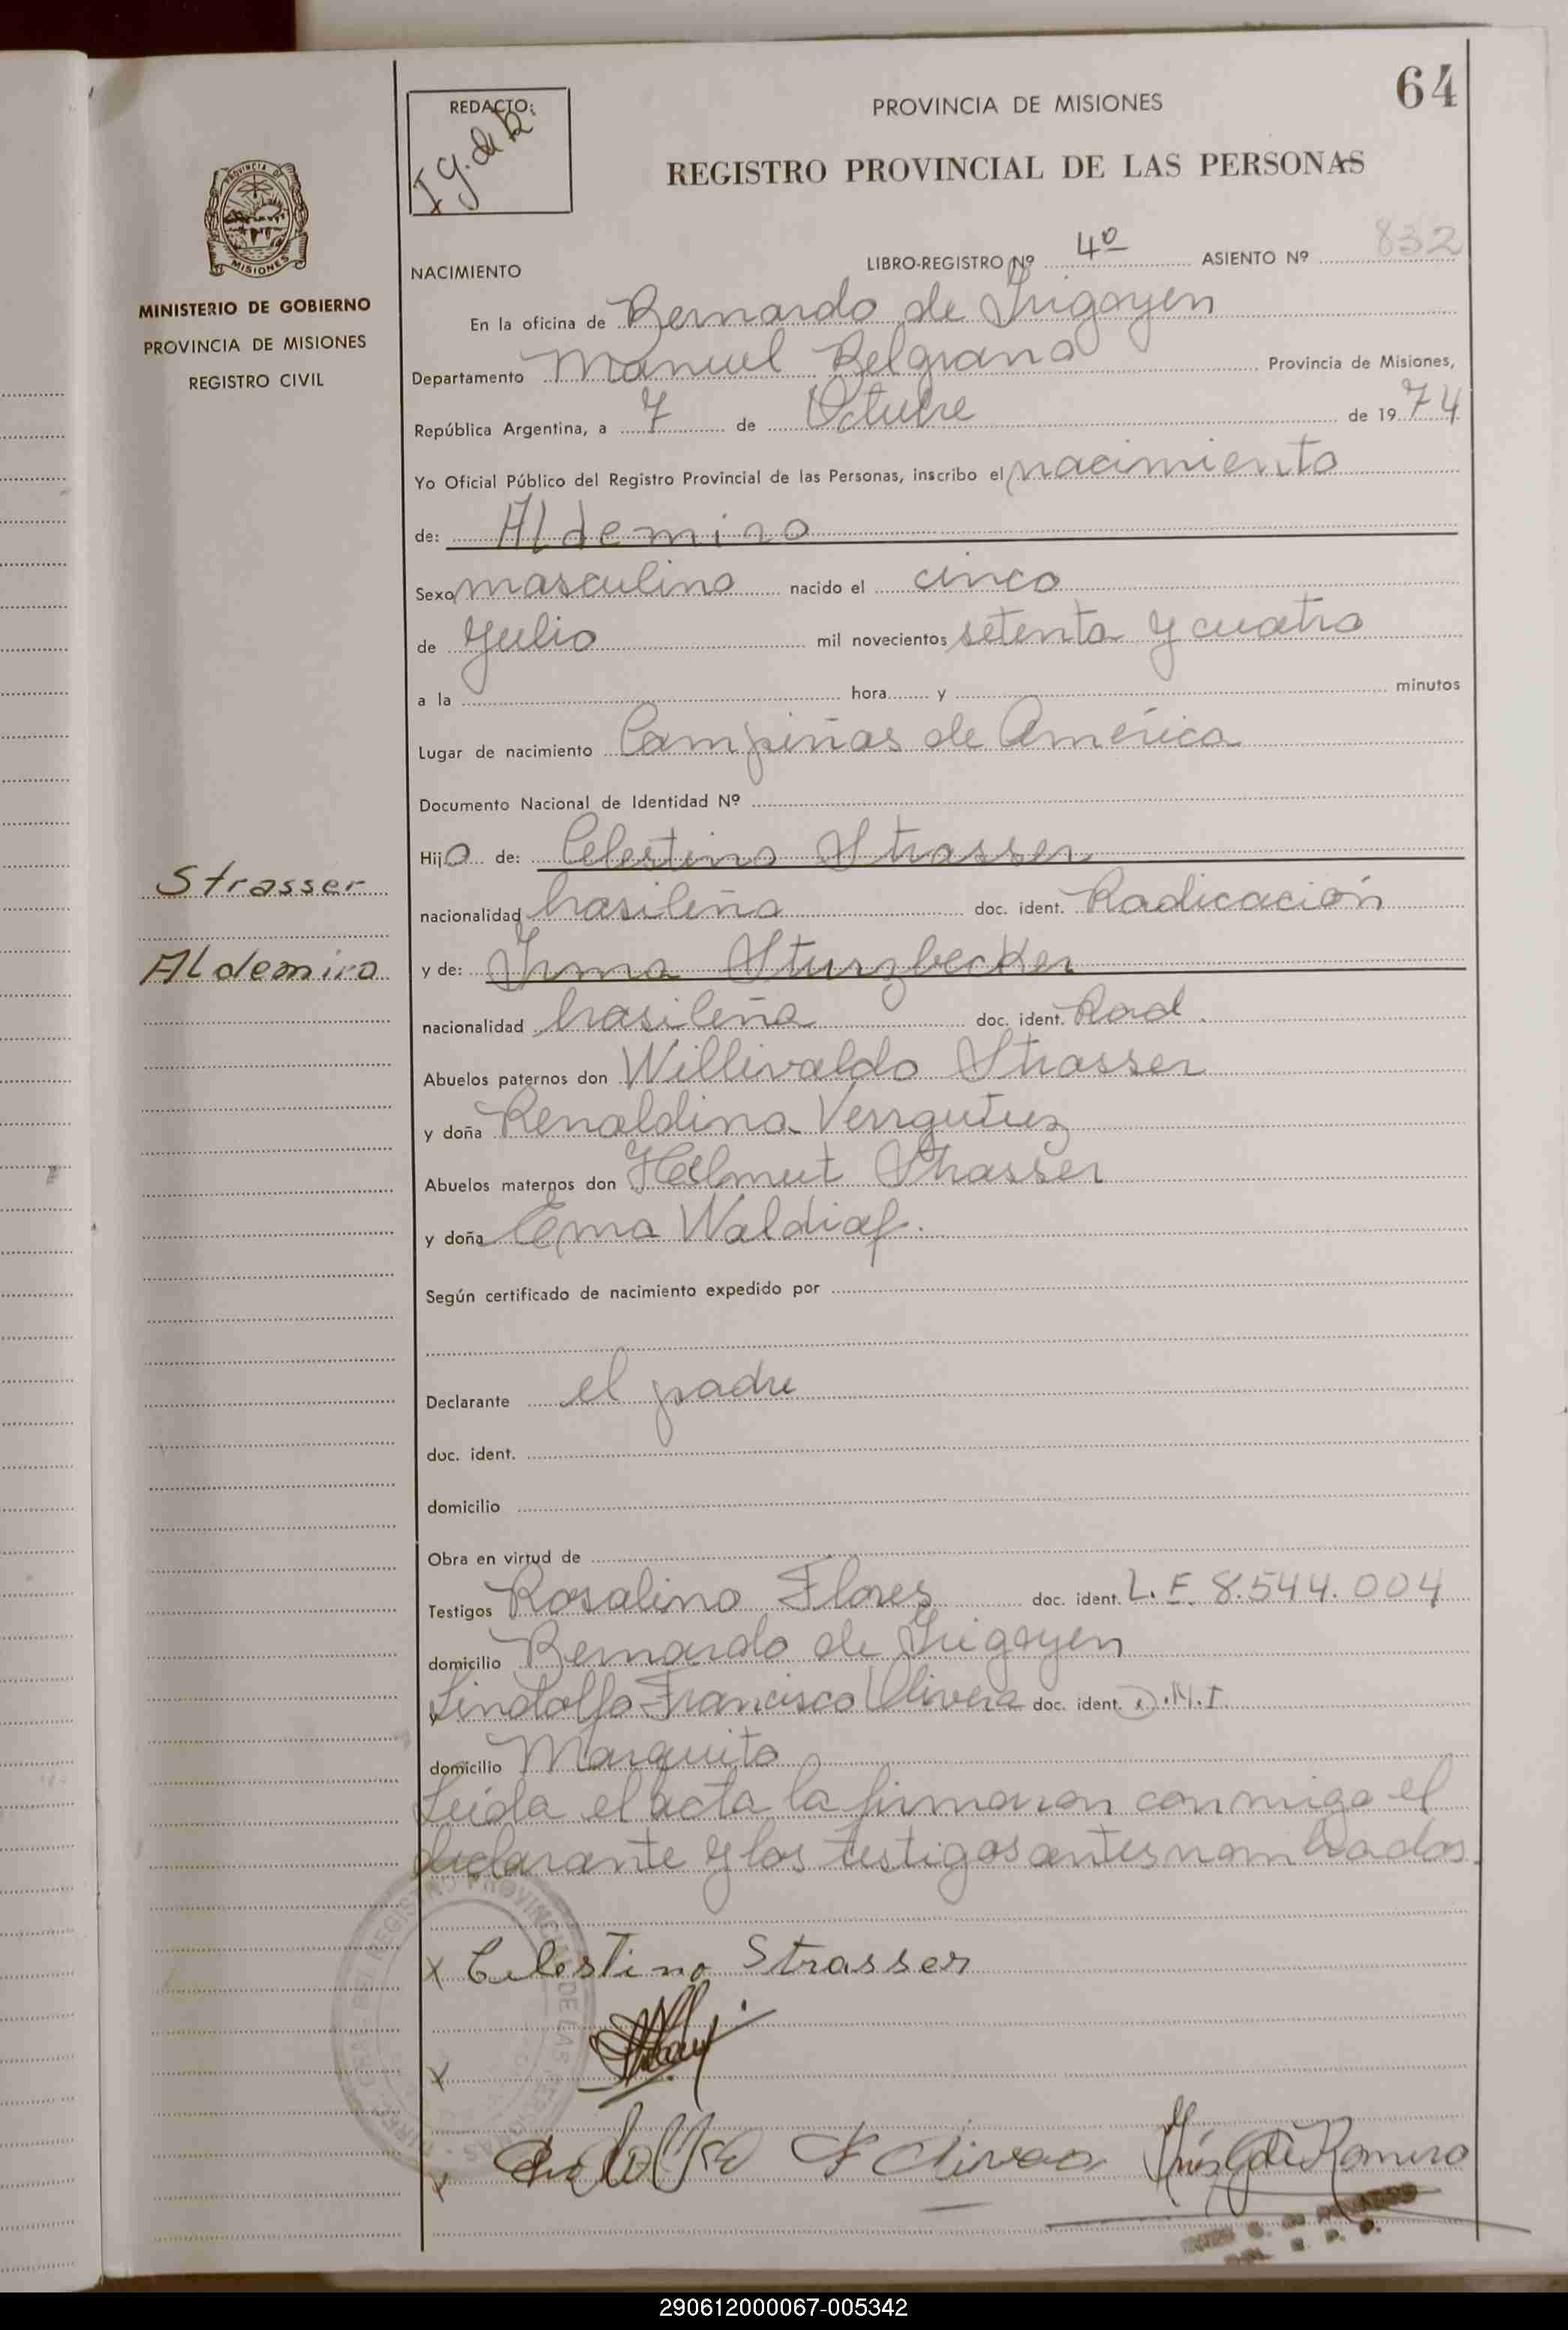 64
REDACTO:
I g. de R.
PROVINCIA DE MISIONES
REGISTRO PROVINCIAL DE LAS PERSONAS
PROVINCIA D
MISIONES
MINISTERIO DE GOBIERNO
PROVINCIA DE MISIONES
REGISTRO CIVIL
NACIMIENTO LIBRO-REGISTRO Nº 4º ASIENTO Nº 832
En la oficina de Bernardo de Irigoyen
Departamento Manuel Belgrano Provincia de Misiones,
República Argentina, a 7 de Octubre de 1974
Yo Oficial Público del Registro Provincial de las Personas, inscribo el nacimiento
de: Aldemiro
Sexo masculino nacido el cinco
de Julio mil novecientos setenta y cuatro
a la hora y minutos
Lugar de nacimiento Campiñas de América
Documento Nacional de Identidad Nº
Hijo de: Celestino Strasser
Strasser
nacionalidad brasileña doc. ident. Radicación
Aldemiro
y de: Irma Sturzbecker
nacionalidad brasileña doc. ident. Rad.
Abuelos paternos don Willivaldo Strasser
y doña Renaldina
Abuelos maternos don Helmut Strasser
y doña Ema Waldiaf.
Según certificado de nacimiento expedido por
Declarante el padre
doc. ident.
domicilio
Obra en virtud de
Testigos Rosalino Flores doc. ident. L.E. 8.544.004
domicilio Bernardo de Irigoyen
Lindolfo Francisco Olivera doc. ident. D.N.I.
domicilio Marquito
Leida el acta la firmaron conmigo el
declarante y los testigos antes nombrados.
x Celestino Strasser
x
x F Olivera Inés G de Romero
290612000067-005342